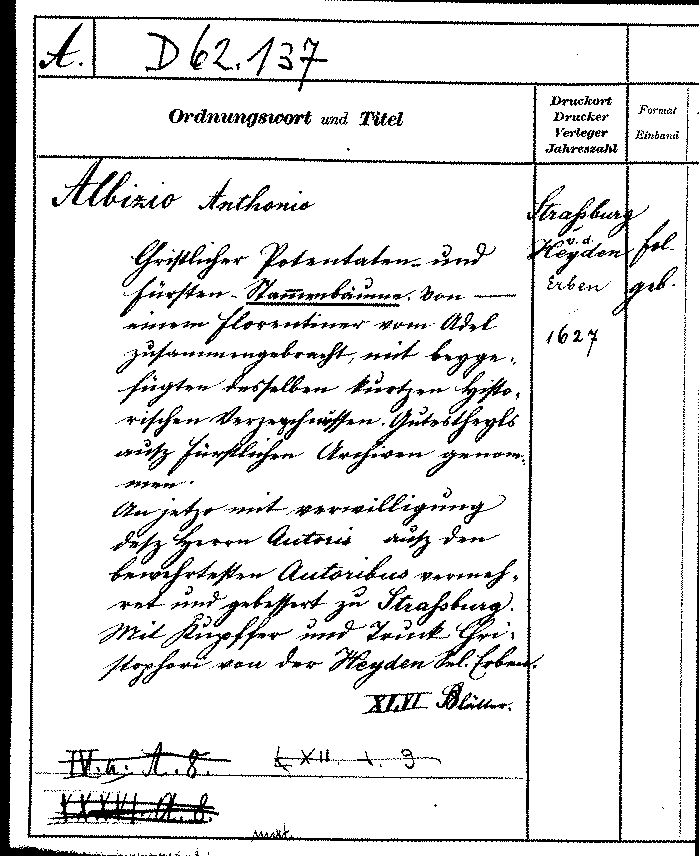 A. D 62.137
Ordnungswort und Titel
Druckort
Drucker
Verleger
Jahreszahl
Format
Einband
Albizio Anthonio
Christlicher Potentaten- und
Fürsten- Stammenbäume. Von —
einem Florentiner vom Adel
zusammengebracht, mit beyge-
fügten desselben kurtzen Histo-
rischen Verzeychnüssen. Gutestheyls
ausz Fürstlichen Archiven genom-
men.
An jetzo mit verwilligung
desz Herrn Autoris ausz den
bewehrtesten Autoribus vermeh-
ret und gebessert zu Straßburg.
Mit Kupffer und Truck Chri-
stophori von der Heyden Sel. Erben.
XLVI Blätter.
Straßburg
v. d.
Heyden
Erben
1627
fol.
geb.
IV. a. A. 8.
XXXVI. A. 8.